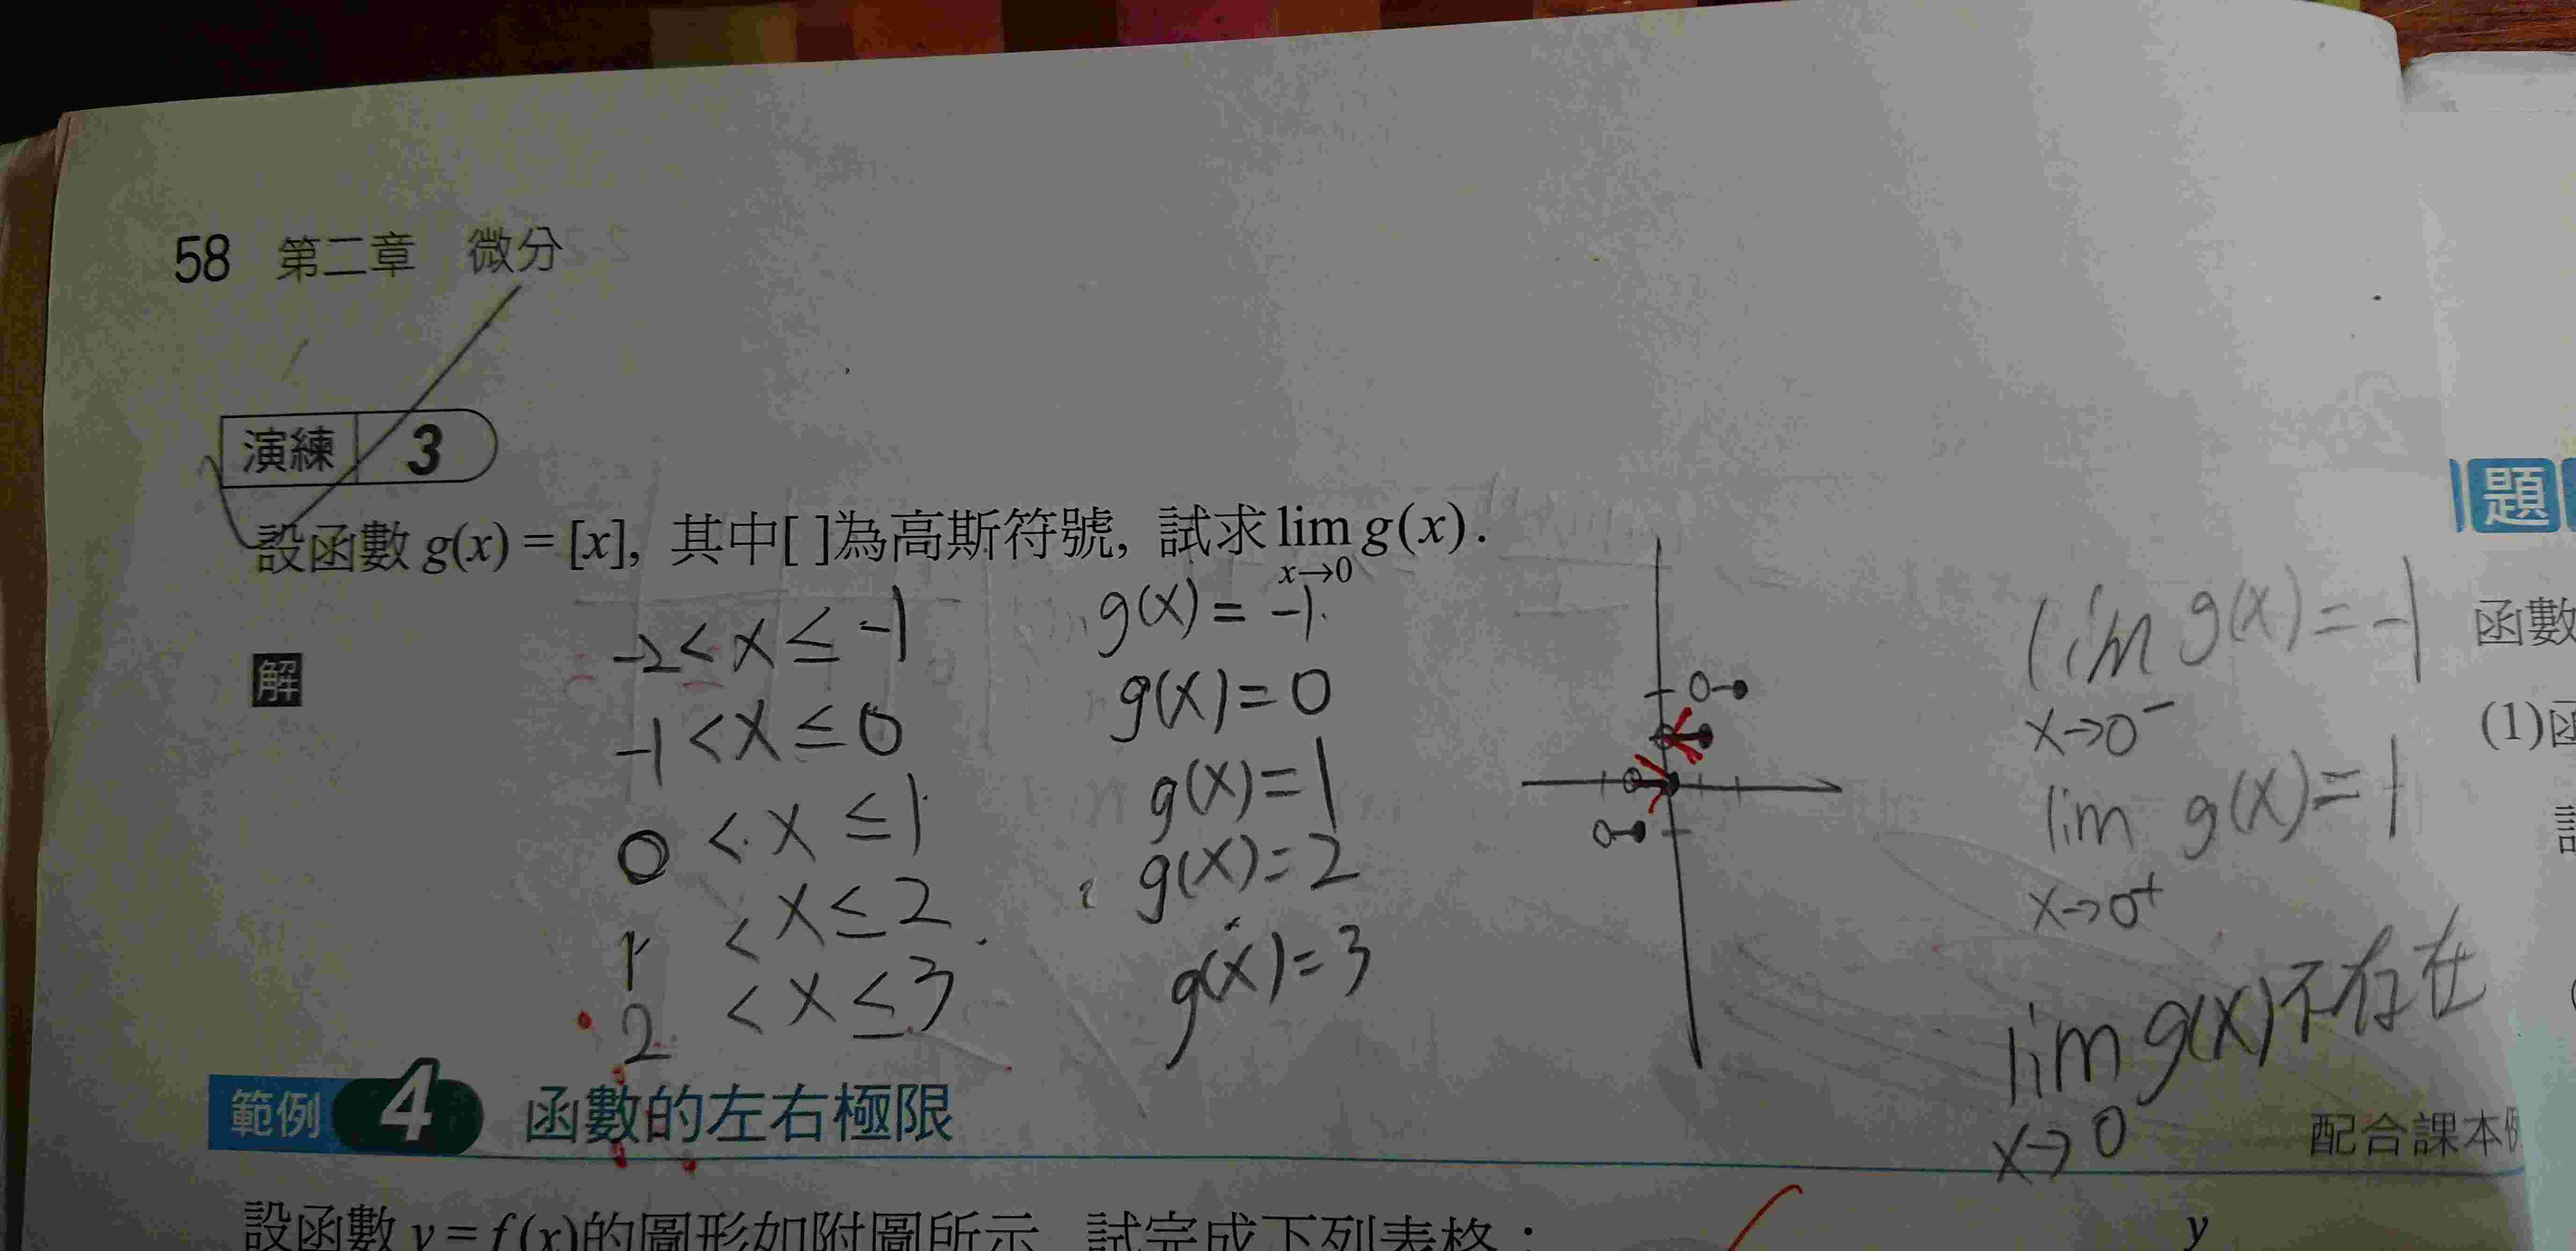 58 第二章 微分
演練 3
設函數 g(x) = [x], 其中[ ]為高斯符號, 試求 lim g(x).
x→0
解
-2 < x ≤ -1 g(x) = -1
-1 < x ≤ 0 g(x) = 0
0 < x ≤ 1 g(x) = 1
1 < x ≤ 2 g(x) = 2
2 < x ≤ 3 g(x) = 3
lim g(x) = -1
x→0⁻
lim g(x) = 1
x→0⁺
lim g(x) 不存在
x→0
範例 4 函數的左右極限
配合課本
設函數 y = f(x)的圖形如附圖所示 試完成下列表格：
y
題
函數
(1)